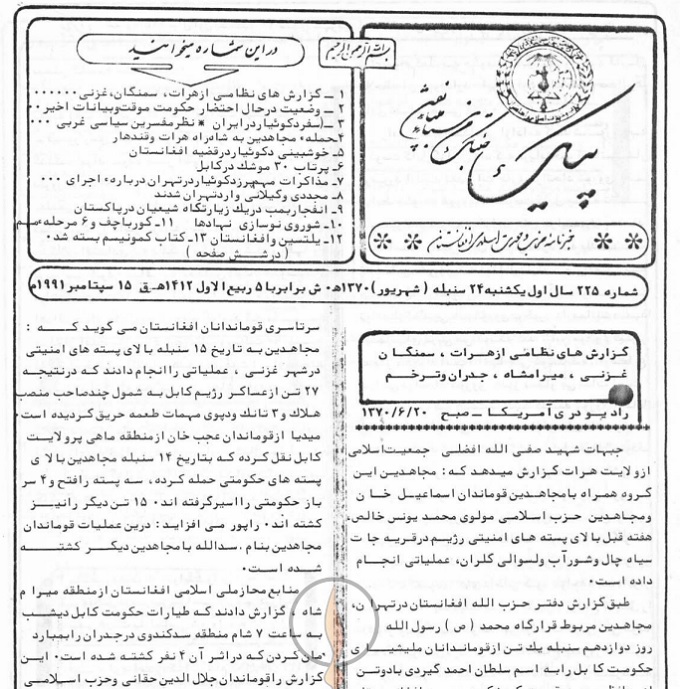 بسم الله الرحمن الرحیم
پیام
در این شماره میخوانید
۱ــ گزارش های نظامی از هرات، سمنگان، غزنی ۰۰۰۰۰۰
۲ــ وضعیت در حال احتضار حکومت موقت و بیانات اخیر ۰۰
۳ــ آسفر دکوئیار در ایران * نظر مفسرین سیاسی غربی ۰۰۰
۴ــ حمله مجاهدین به شاهراه هرات و قندهار
۵ــ خوشبینی دکوئیار در قضیه افغانستان
۶ــ پرتاب ۳۰ موشک در کابل
۷ــ مذاکرات مهم پرزدکوئیار در تهران درباره اجرای ۰۰۰
۸ــ مجددی و گیلانی وارد تهران شدند
۹ــ انفجار بمب در یک زیارتگاه شیعیان در پاکستان
۱۰ــ شوروی نوسازی نهادها ۱۱ــ کورباچف و ۶ مرحله مهم
۱۲ــ یلتسین و افغانستان ۱۳ــ کتاب کمونیسم بسته شد۰
( در شش صفحه )
شماره ۲۲۵ سال اول یکشنبه ۲۴ سنبله ( شهریور ) ۱۳۷۰ هـ۰ ش برابر با ۵ ربیع الاول ۱۴۱۲ هـ ق ۱۵ سپتامبر ۱۹۹۱م
گزارش های نظامی از هرات ، سمنگان
غزنی ، میرامشاه ، جدران و ترخم
رادیو دری آمریکا ــ صبح ۱۳۷۰/۶/۲۰
جبهات شهید صفی الله افضلی جمعیت اسلامی
از ولایت هرات گزارش میدهد که : مجاهدین این
گروه همراه با مجاهدین قوماندان اسماعیل خان
و مجاهدین حزب اسلامی مولوی محمد یونس خالص،
هفته قبل بالای پسته های امنیتی رژیم در قریه جات
سیاه چال و شورآب ولسوالی گلران، عملیاتی انجام
داده است۰
طبق گزارش دفتر حزب الله افغانستان در تهران،
مجاهدین مربوط قرارگاه محمد ( ص ) رسول الله
روز دوازدهم سنبله یک تن از قوماندانان ملیشیای
حکومت کابل را به اسم سلطان احمد گیردی با دو تن
سرتاسری قوماندانان افغانستان می گوید کـــه :
مجاهدین به تاریخ ۱۵ سنبله بالای پسته های امنیتی
در شهر غزنی ، عملیاتی را انجام دادند که در نتیجه
۲۷ تن از عساکر رژیم کابل به شمول چند صاحب منصب
هلاک و ۳ تانک و دیپوی مهمات طعمه حریق گردیده است۰
میدیا از قوماندان عجب خان از منطقه ماهی پر ولایت
کابل نقل کرده که بتاریخ ۱۴ سنبله مجاهدین بالای
پسته های حکومتی حمله کرده ، سه پسته را فتح و ۴ سر
باز حکومتی را اسیر گرفته اند۰ ۱۵ تن دیگر را نیــز
کشته اند۰ راپور می افزاید : درین عملیات قوماندان
مجاهدین بنام ۰ سدالله با مجاهدین دیگر کشتـــه
شده است۰
منابع محاز ملی اسلامی افغانستان از منطقه میرام
شاه ، گزارش دادند که طیارات حکومت کابل دیشب
به ساعت ۷ شام منطقه سدکندوی در جدران را بمبارد
مان کردن که در اثر آن ۴ نفر کشته شده است۰ این
گزارش را قوماندان جلال الدین حقانی و حزب اسلامی